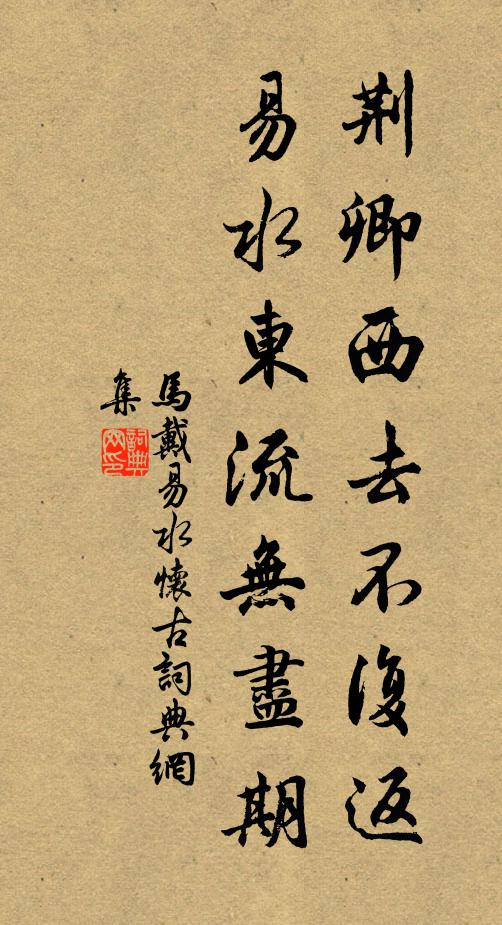 荆卿西去不復返
易水東流無盡期
馬戴易水懷古詞典網
集
詞典
网印